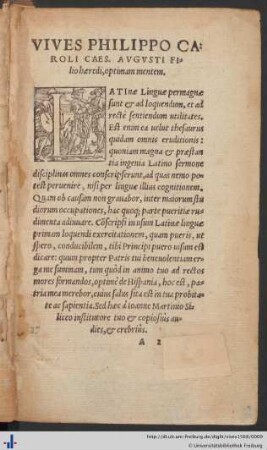 VIVES PHILIPPO CA-
ROLI CAES. AVGVSTI FI-
lio hæredi, optimam mentem.
LATINæ Linguæ permagnæ
sunt & ad loquendum, et ad
rectè sentiendum utilitates.
Est enim ea uelut thesaurus
quidam omnis eruditionis:
quoniam magna & præstan
tia ingenia Latino sermone
disciplinas omnes conscripserunt, ad quas nemo po-
test peruenire, nisi per linguæ illius cognitionem.
Quam ob causam non grauabor, inter maiorum stu
diorum occupationes, hac quoq; parte pueritiæ ru-
dimenta adiuuare. Conscripsi in usum Latinæ linguæ
primam loquendi exercitationem, quam pueris, ut
spero, conducibilem, tibi Principi puero uisum est
dicare: quum propter Patris tui beneuolentiam er-
ga me summam, tum quòd in animo tuo ad rectos
mores formandos, optimè de Hispania, hoc est, pa-
tria mea merebor, cuius salus sita est in tua probita-
te ac sapientia. Sed hæc à Ioanne Martinio Si-
liceo institutore tuo & copiosiùs au-
dies, & crebriùs.
A 2
http://dl.ub.uni-freiburg.de/diglit/vives1550/0003
© Universitätsbibliothek Freiburg